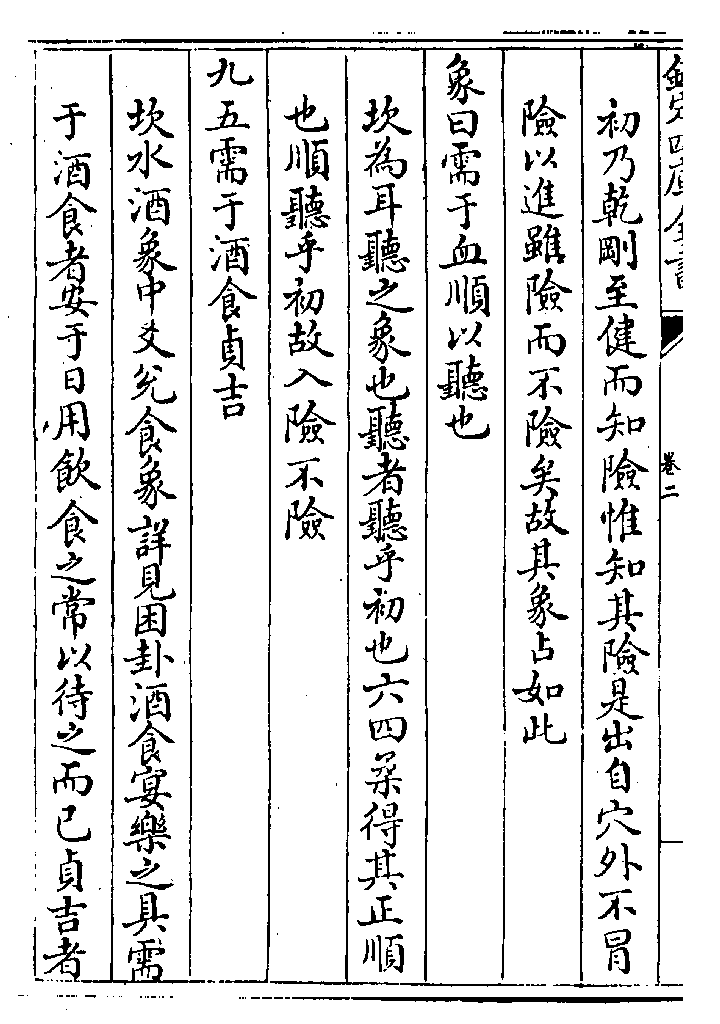 欽定四庫全書
卷二
初乃乾剛至健而知險惟知其險是出自穴外不冒
險以進雖險而不險矣故其象占如此
象曰需于血順以聽也
坎為耳聽之象也聽者聽乎初也六四柔得其正順
也順聽乎初故入險不險
九五需于酒食貞吉
坎水酒象中爻兌食象詳見困卦酒食宴樂之具需
于酒食者安于日用飲食之常以待之而已貞吉者